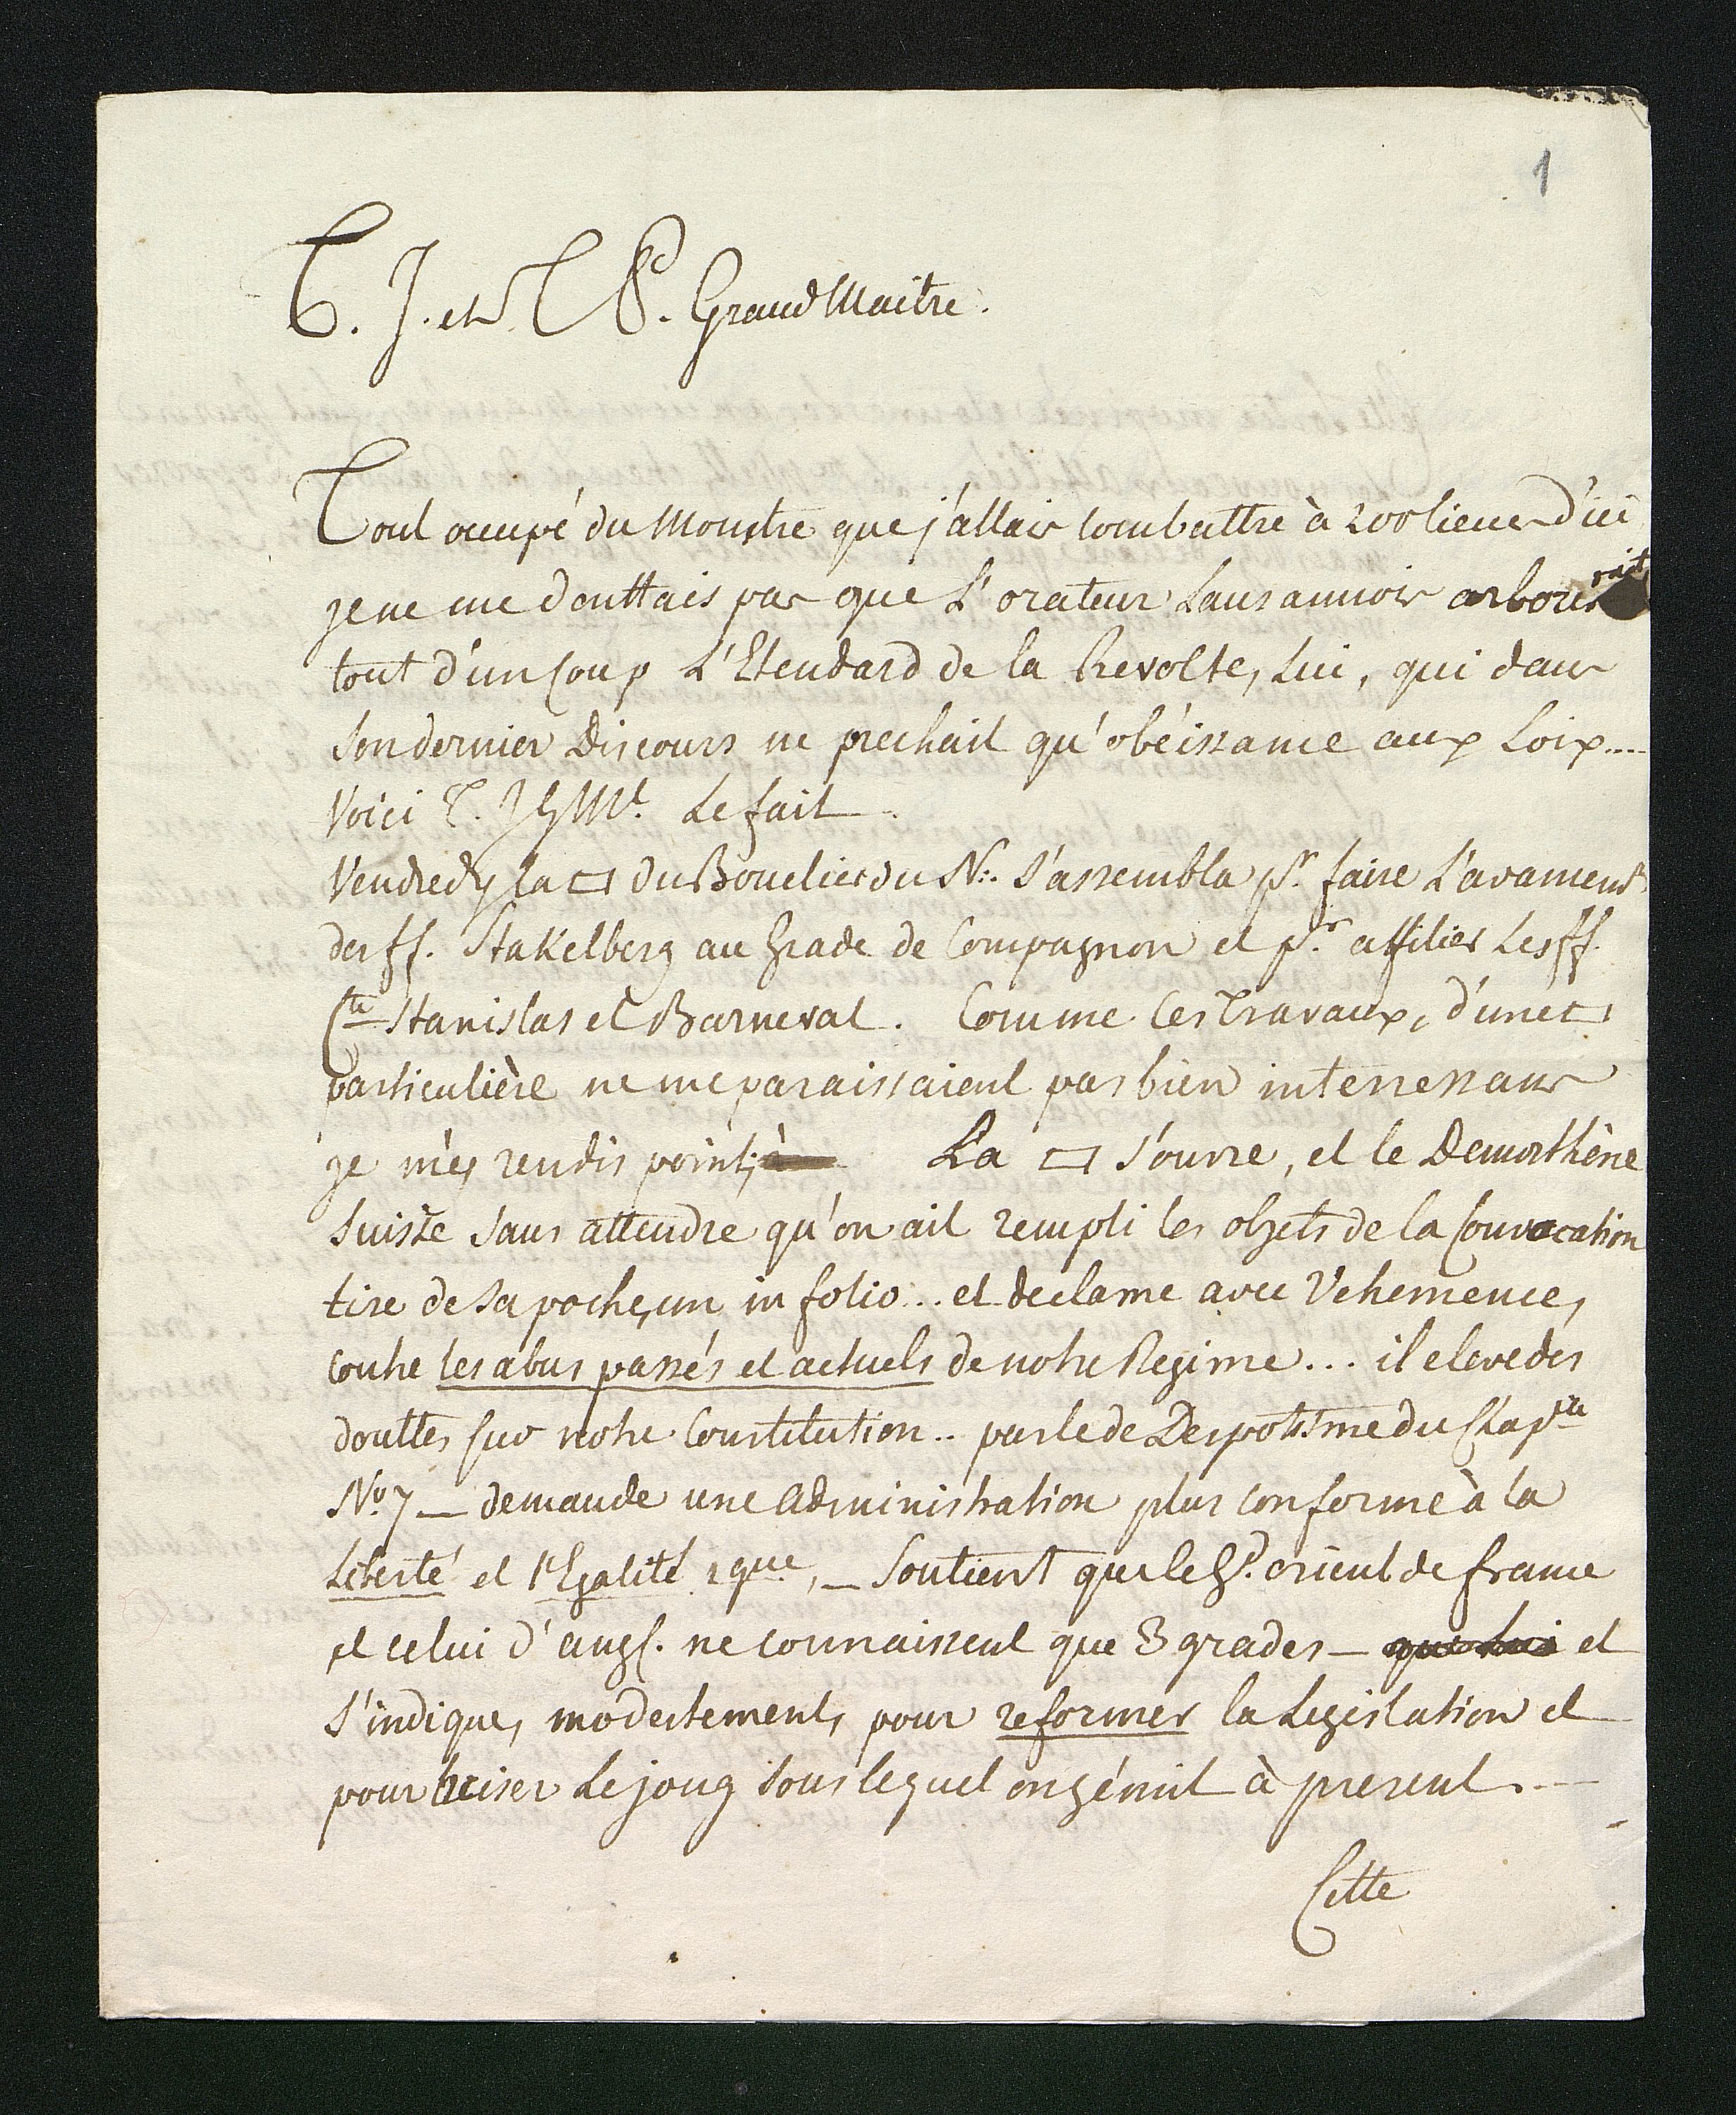 1
T. I. et T Rd. Grand Maitre.
Tout occupé du Monstre que j'allais combattre à 200 lieues d'ici
je ne me douttais pas que L'orateur Lausannois arborerait
tout d'un Coup L'Etendard de la Revolte, Lui, qui dans
Son dernier Discours ne prechait qu'obéissance aux Loix....
Voici T. I G M. Le fait.
Vendredy la □ du Bouclier du N:. S'assembla pr. faire L'avamens
des ff. Stakelberg au grade de Compagnon et pr. affilier Les ff.
Cte Stanislas et Barneval. Comme les Travaux, d'une □
particulière ne me paraissaient pas bien interressans
je m'ey rendis point; La □ S'ouvre, et le Demosthène
Suisse Sans attendre qu'on ait rempli les objets de la Convocation
tire de Sa poche, un in folio... et declame avec Vehemence,
contre les abus passés et actuels de notre Regime... il eleve des
douttes Sur notre Constitution.. parle de Despotisme du Chaptre
No. 7 — demande une administration plus conforme à la
Liberté et l'Egalité mque, — Soutient que le Gd. orient de france
et celui d'angl. ne connaissent que 3 grades — que lui et
S'indique, modestement, pour reformer la Legislation et
pour briser Le joug Sous lequel on gémit à present. —
Cette